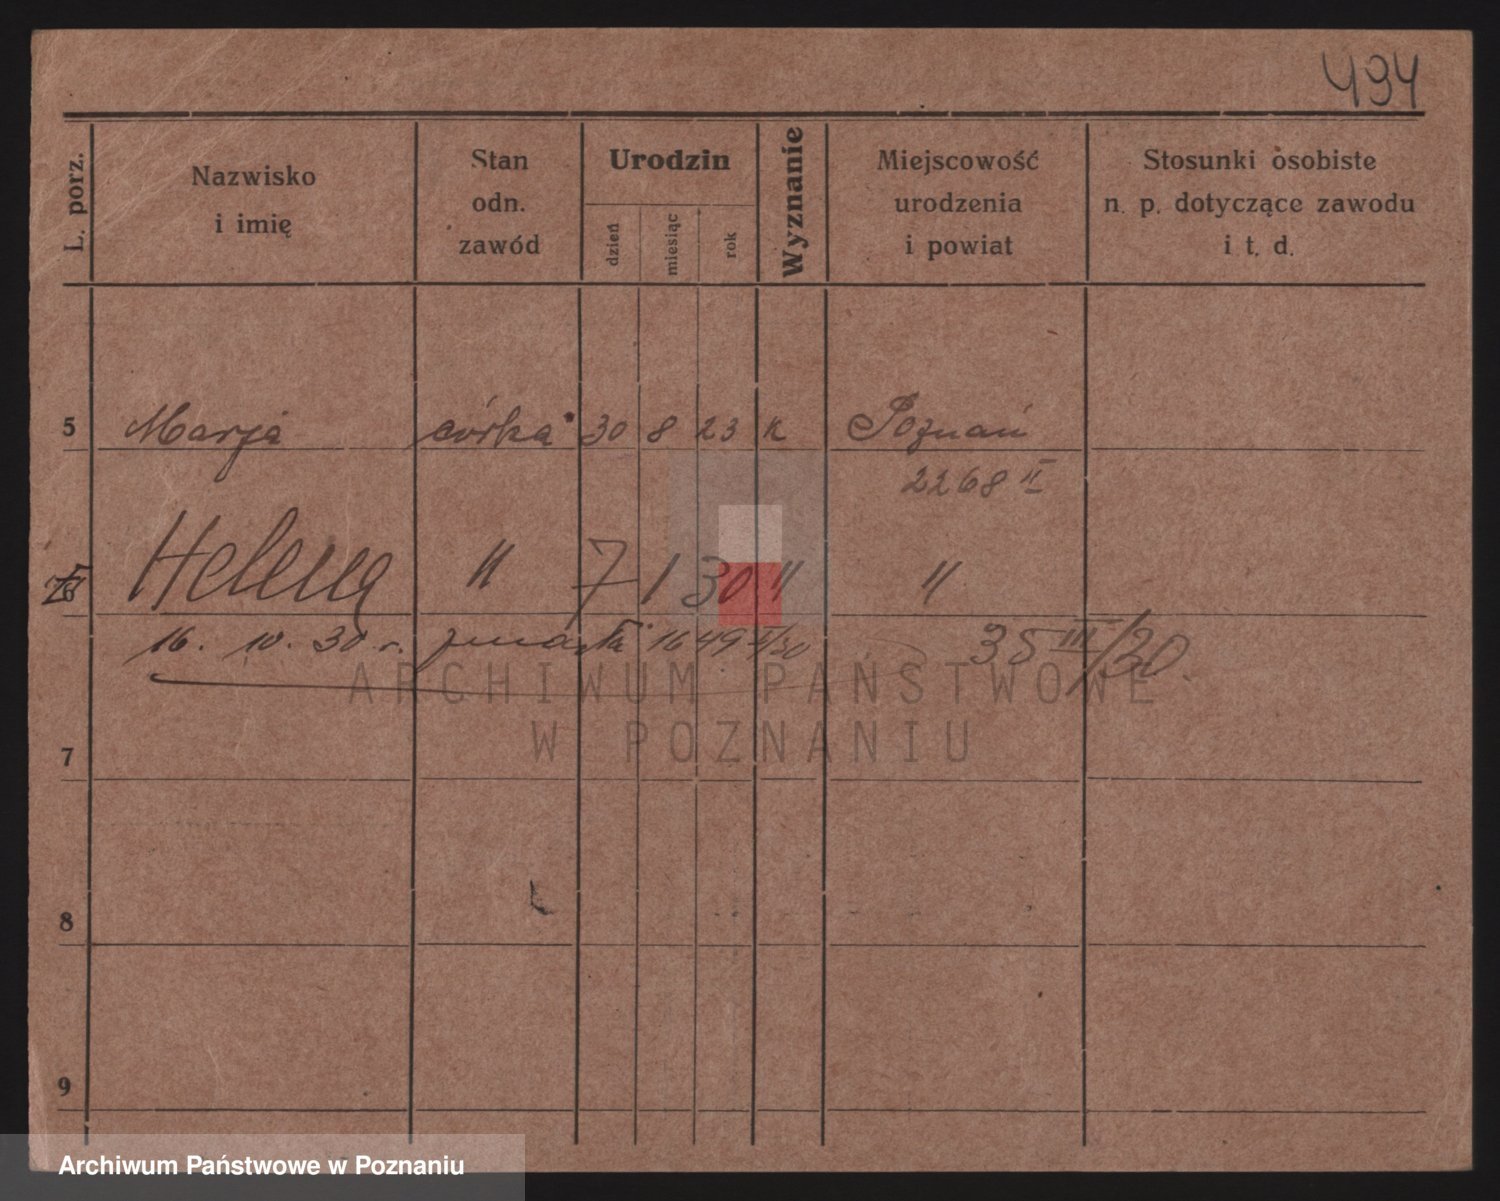 494
L. porz.
Nazwisko
i imię
Stan
odn.
zawód
Urodzin
dzień
miesiąc
rok
Wyznanie
Miejscowość
urodzenia
i powiat
Stosunki osobiste
n. p. dotyczące zawodu
i t. d.
5 Marja córka 30 8 23 k Poznań
2268 II
6 Helena " 7 1 30 " "
16. 10. 30 r. zmarła 1649 II/30 35 III/30
ARCHIWUM PAŃSTWOWE
W POZNANIU
7
8
9
Archiwum Państwowe w Poznaniu